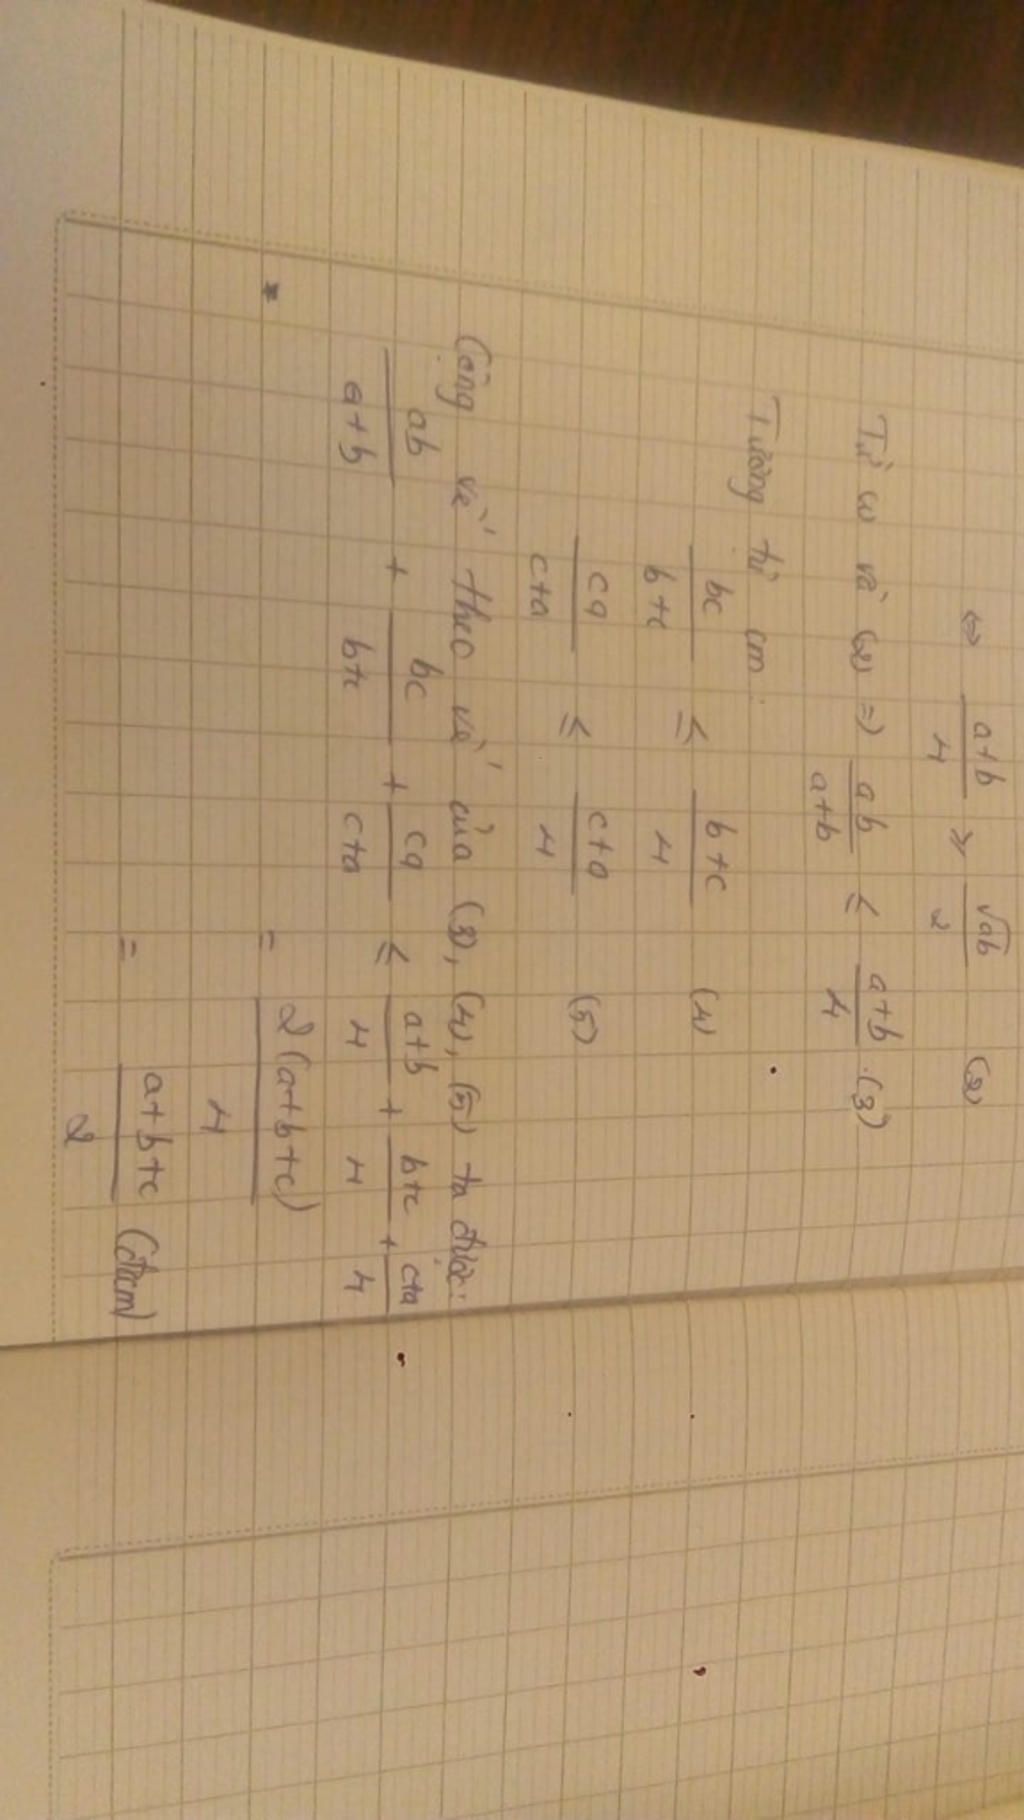 ⇔ (a+b)/4 ≥ √ab/2 (2)
Từ (1) và (2) => ab/(a+b) ≤ (a+b)/4 . (3)
Tương tự cm:
bc/(b+c) ≤ (b+c)/4 (4)
ca/(c+a) ≤ (c+a)/4 (5)
Cộng vế theo vế của (3), (4), (5) ta được:
ab/(a+b) + bc/(b+c) + ca/(c+a) ≤ (a+b)/4 + (b+c)/4 + (c+a)/4
= 2(a+b+c)/4
= (a+b+c)/2 (đfcm)